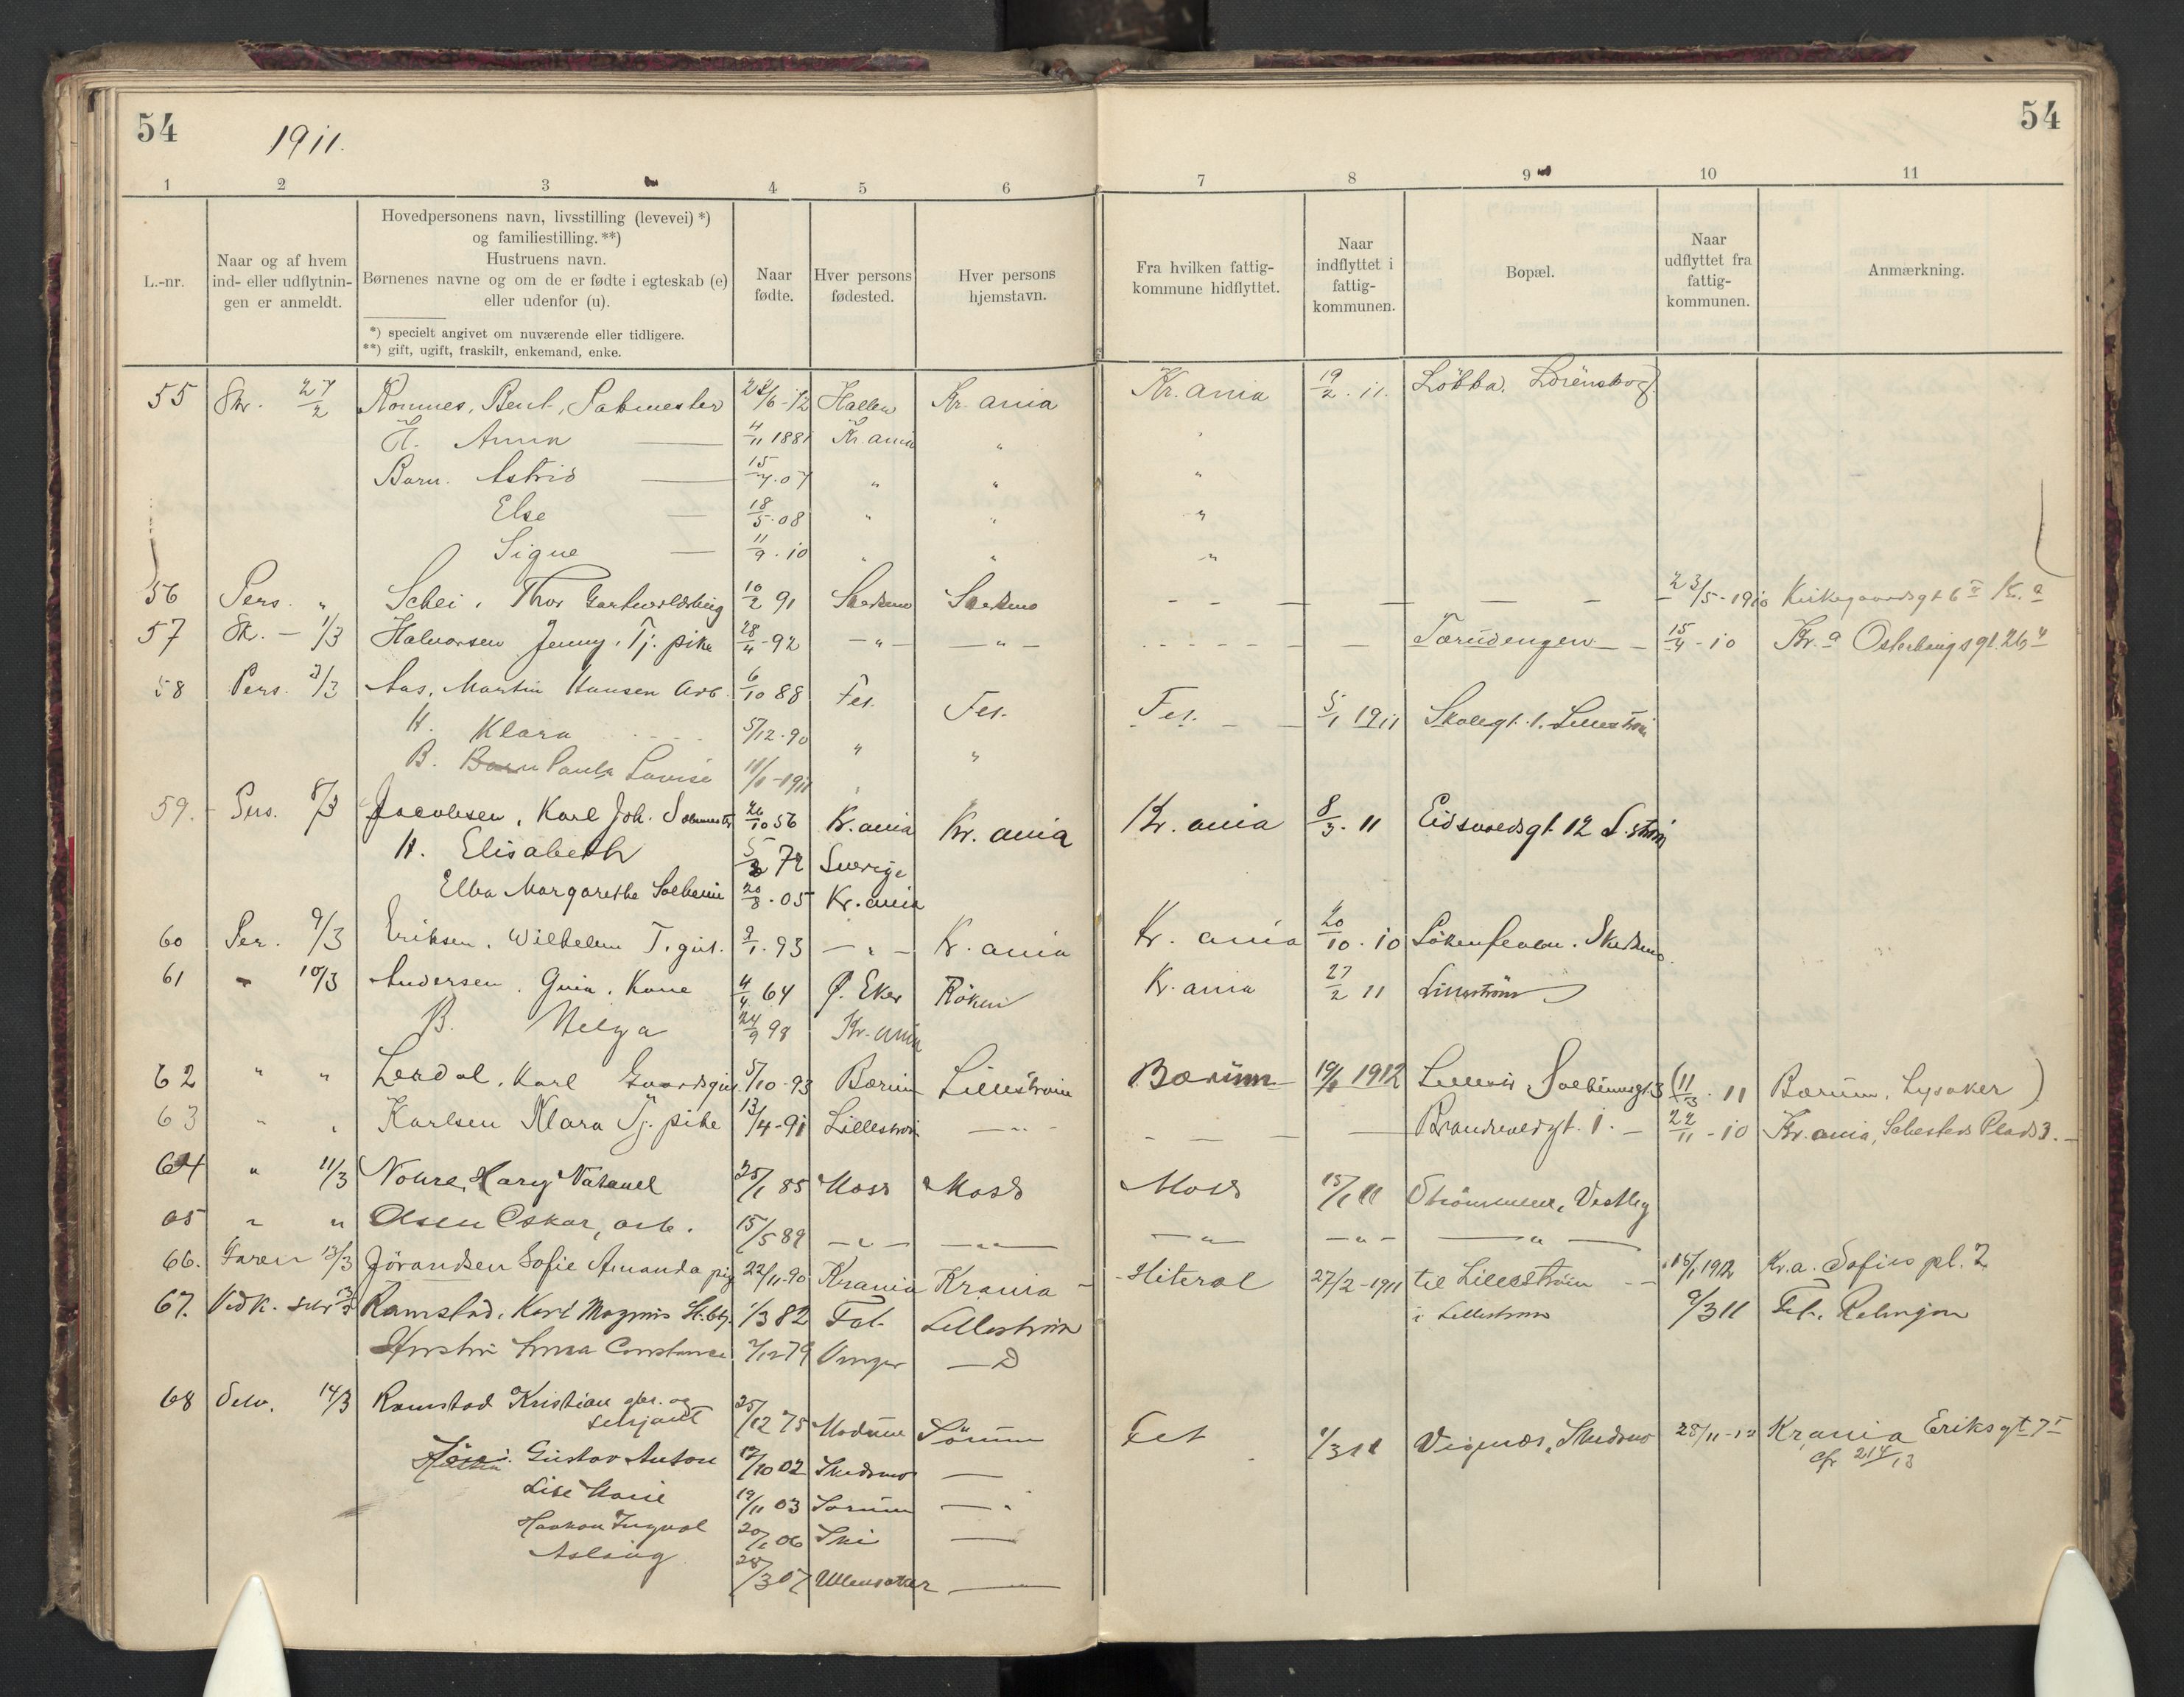 54
1911.
54
1 2 3 4 5 6 7 8 9 10 11
L.-nr.
Naar og af hvem
ind- eller udflytnin-
gen er anmeldt.
Hovedpersonens navn, livsstilling (levevei) *)
og familiestilling. **)
Hustruens navn.
Børnenes navne og om de er fødte i egteskab (e)
eller udenfor (u).
*) specielt angivet om nuværende eller tidligere.
**) gift, ugift, fraskilt, enkemand, enke.
Naar
fødte.
Hver persons
fødested.
Hver persons
hjemstavn.
Fra hvilken fattig-
kommune hidflyttet.
Naar
indflyttet i
fattig-
kommunen.
Bopæl.
Naar
udflyttet fra
fattig-
kommunen.
Anmærkning.
55 Skr. 27/2 Romnes, Bent, Kr.ania Kr.ania 19/2 . 11. Lörenskog
H. Anna — 4/11 1881 Kr.ania "
Barn. Astrid — 15/7.07 " " "
Else — 18/5.08 " " "
Signe — 11/9.10 " " "
56 Pers. " Schei, Thor 10/2 91 Skedsmo Skedsmo — 23/5-1910 Kirkegaardsgt 6 II Kr.a
57 Sk. — 1/3 Halvorsen Jenny, Tj. pike 28/4-92 — " — — " — — 15/4-10 Kr.a
58 Pers. 3/3 Aas, Martin Hansen Arb. 6/10 88 Fet. Fet. Fet. — 5/1 1911 Skolegt. 1. Lilleström
H. Klara 5/12-90 " "
B. Barn Paula Lovise 11/1-1911 "
59. Pers. 8/3 Jacobsen, Karl Joh. 26/10 56 Kr.ania Kr.ania Kr.ania 8/3 . 11 Eidsvoldsgt. 12 L.ström
H. Elisabeth 72 Sverige
Elba Margarethe 20/8.05 Kr.ania
60 Per. 9/3 Eriksen, Wilhelm T.gut. 2/1.93 — " — Kr.ania Kr.ania 20/10.10 Skedsmo.
61 10/3 Andersen, Kone 4/4 64 Ø. Eker Röken Kr.ania 27/2 11 Lilleström
B. Helga 24/9 98 Kr.ania
62 " " Lerdal, Karl Gaardsgut. 5/10-93 Bærum Lilleström Bærum 1912 (11/3 . 11 Bærum, Lysaker)
63 " " Karlsen Klara Tj. pike 13/4-91 Lilleström — " — — Brandvoldgt. 1. — 22/11-10 Kr.ania, Sehesteds Plads 3.
64 " 11/3 Nohre, Harry Natanael 25/1 85 Moss Moss Moss 15/1 11 Strömmen, Vestby
65 " " Olsen Oskar, arb. 15/5 89 — " — — " — — " — — " — — " —
66. Faren 13/3 Jörandsen Sofie Amanda pige 22/11-90 Krania Krania Hiterøl 27/2-1911 til Lilleström — 15/1 1912 Kr.a. Sofies pl. 2
67. Vedk. selv Ramstad, Karl Magnus 1/3 82 Fet Lilleström i Lilleström 9/3 11 Fet, Relingen
Hustru Constance 7/12-79 Vinger — D
68 Selv. 14/3 Ramstad Kristian gbr. og
serjant 25/12 75 Modum Sörum Fet 1/3 11 Vignæs, Skedsmo 28/11-12 Krania Eriksgt 7 I
cfr 214/13
Gustav Anton 17/10 02 Skedsmo —
Lise Marie 19/11 03 Sörum — "
Haakon Ingval 20/1 06 Ski —
Aslaug 28/3 07 Ullensaker —